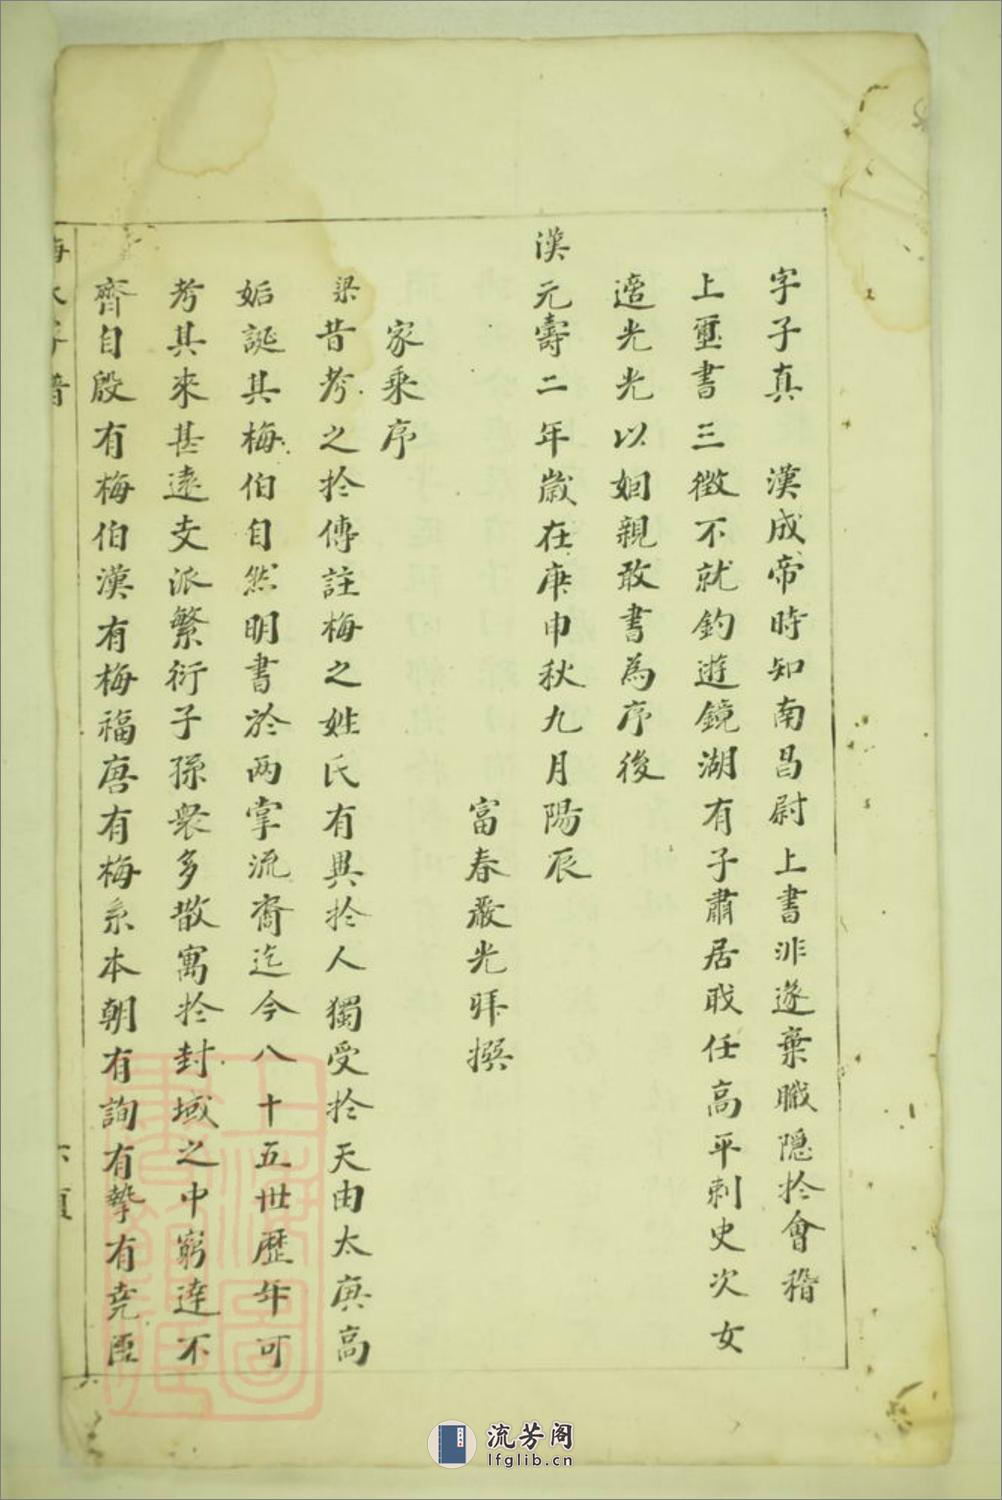 字子真 漢成帝時知南昌尉上書非遂棄職隱於會稽
上璽書三徵不就釣遊鏡湖有子肅居戢任高平刺史次女
適光光以姻親敢書為序後
漢元壽二年歲在庚申秋九月陽辰
富春嚴光拜撰
家乘序
梁昔考之於傳註梅之姓氏有異於人獨受於天由太庾高
姤誕其梅伯自然明書於两掌流裔迄今八十五世歷年可
考其來甚遠支派繁衍子孫衆多散寓於封域之中窮達不
齊自殷有梅伯漢有梅福唐有梅系本朝有詢有摯有堯臣
上海圖
書館藏
流芳阁
lfglib.cn